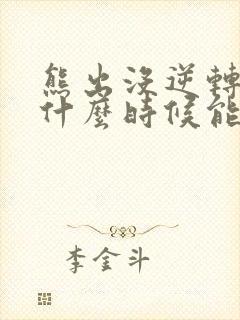 熊出沒逆轉
什麼時候能
李金斗